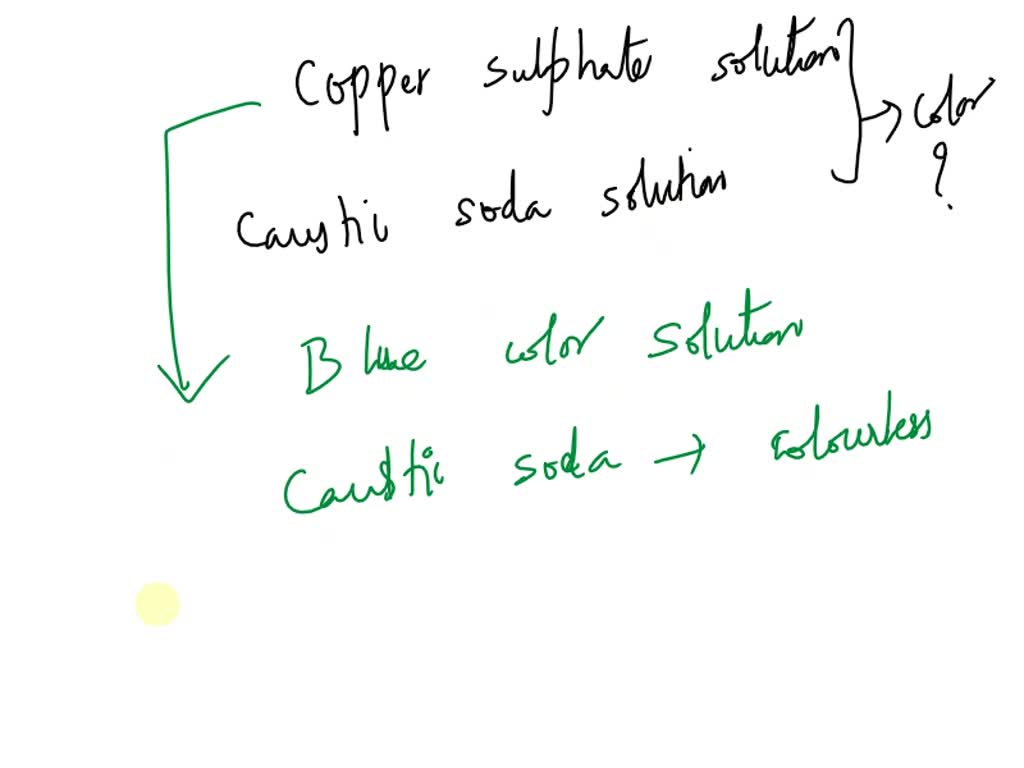 Copper sulphate solution
→ color
?
Caustic soda solution
Blue color solution
Caustic soda → colourless